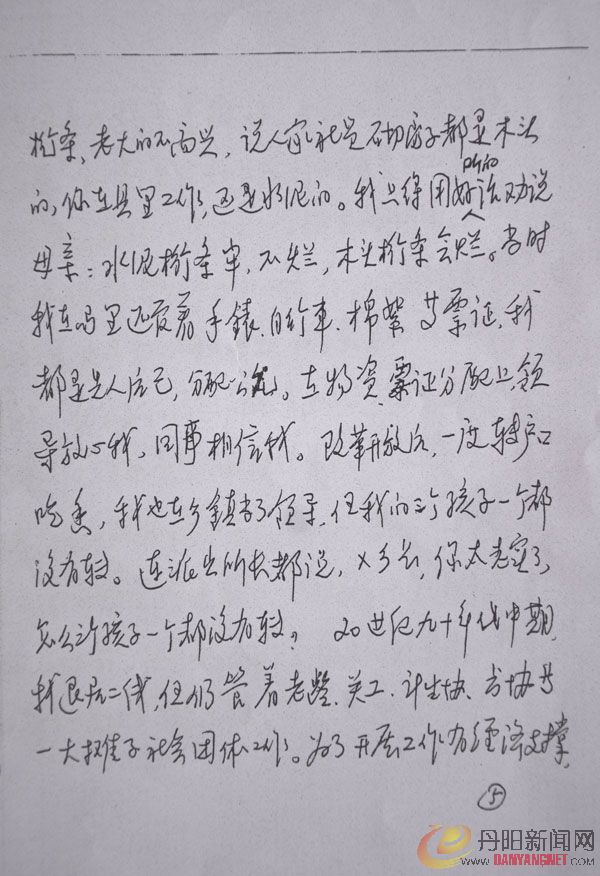 桁条，老大的不高兴，说人家社员砌房子都是木头
的，你在县里工作，还是水泥的。我只得用好话劝说
母亲：水泥桁条牢，不烂，木头桁条会烂。当时
我在局里还管着手錶、自行車、棉絮等票证，我
都是先人后己，分配公允。在物资、票证分配上，领
导放心我，同事相信我。改革开放后，一度转户口
吃香，我也在乡鎮当了领导，但我的三个孩子一个都
没有转。连派出所长都说，×乡长，你太老实了，
怎么让孩子一个都没有转？20世纪九十年代中期，
我退居二线，但仍管着老龄、关工、计生协、书协等
一大摊子社会团体工作。为了开展工作有经济支撑，
⑤
丹阳新闻网
WWW.DANYANGNET.COM